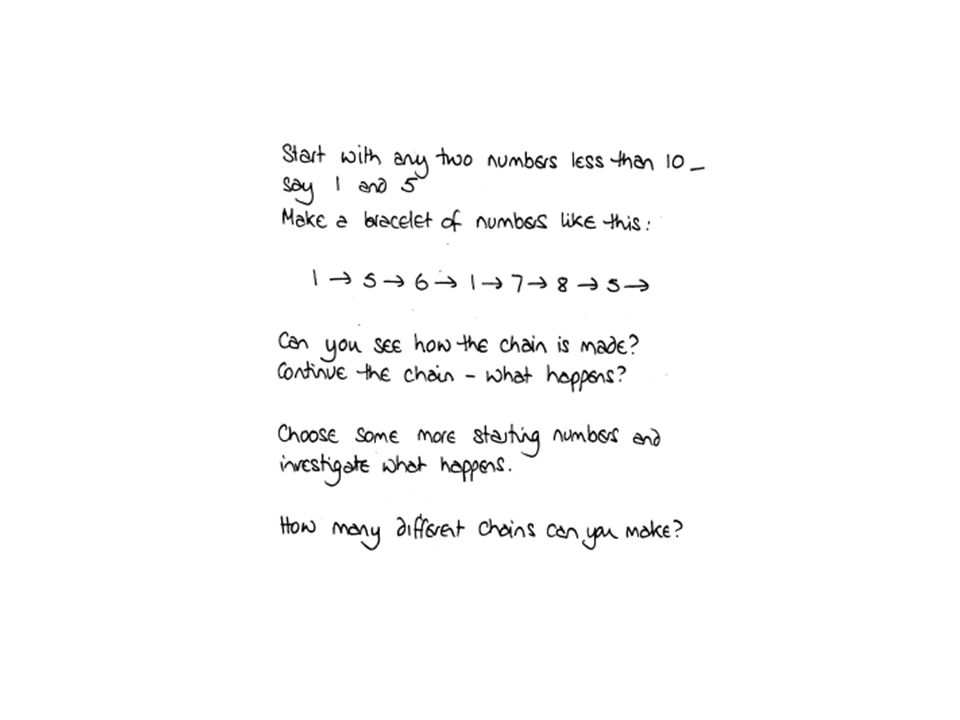 Start with any two numbers less than 10 –
say 1 and 5
Make a bracelet of numbers like this:
1 → 5 → 6 → 1 → 7 → 8 → 5 →
Can you see how the chain is made?
Continue the chain – what happens?
Choose some more starting numbers and
investigate what happens.
How many different chains can you make?